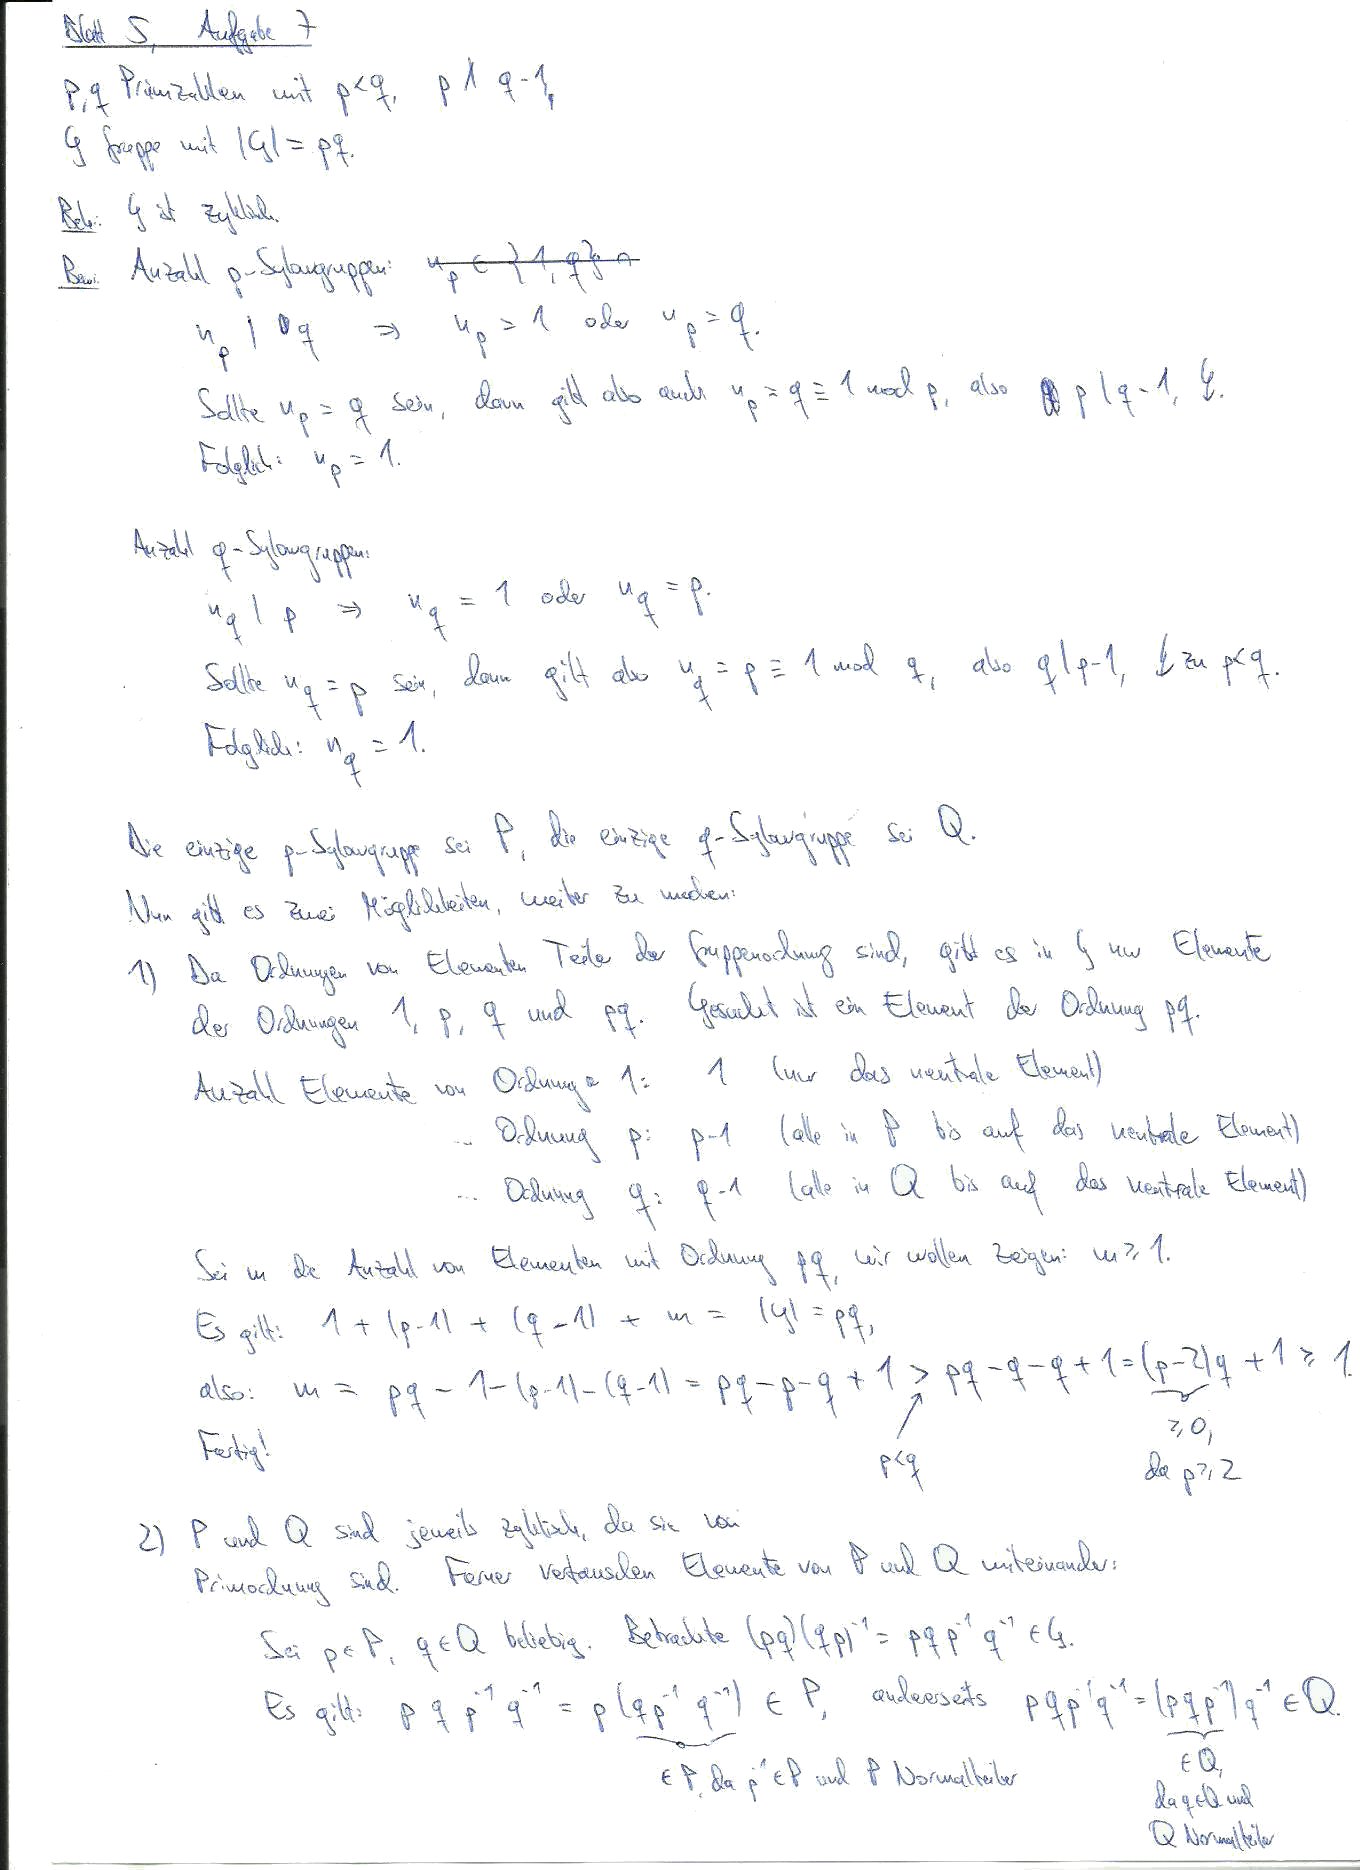 Blatt 5, Aufgabe 7
p,q Primzahlen mit p<q, p ∤ q-1,
G Gruppe mit |G| = pq.
Beh: G ist zyklisch.
Bew: Anzahl p-Sylowgruppen: n_p ∈ {1, q} ∩
n_p | q ⇒ n_p = 1 oder n_p = q.
Sollte n_p = q sein, dann gilt also auch n_p = q ≡ 1 mod p, also p | q-1, ↯.
Folglich: n_p = 1.
Anzahl q-Sylowgruppen:
n_q | p ⇒ n_q = 1 oder n_q = p.
Sollte n_q = p sein, dann gilt also n_q = p ≡ 1 mod q, also q | p-1, ↯ zu p<q.
Folglich: n_q = 1.
Die einzige p-Sylowgruppe sei P, die einzige q-Sylowgruppe sei Q.
Nun gibt es zwei Möglichkeiten, weiter zu machen:
1) Da Ordnungen von Elementen Teiler der Gruppenordnung sind, gibt es in G nur Elemente
der Ordnungen 1, p, q und pq. Gesucht ist ein Element der Ordnung pq.
Anzahl Elemente von Ordnung 1: 1 (nur das neutrale Element)
... Ordnung p: p-1 (alle in P bis auf das neutrale Element)
... Ordnung q: q-1 (alle in Q bis auf das neutrale Element)
Sei m die Anzahl von Elementen mit Ordnung pq, wir wollen zeigen: m ≥ 1.
Es gilt: 1 + (p-1) + (q-1) + m = |G| = pq,
also: m = pq - 1 - (p-1) - (q-1) = pq - p - q + 1 > pq - q - q + 1 = (p-2)q + 1 ≥ 1.
p<q
≥0,
da p≥2
Fertig!
2) P und Q sind jeweils zyklisch, da sie von
Primordnung sind. Ferner vertauschen Elemente von P und Q miteinander:
Sei p∈P, q∈Q beliebig. Betrachte (pq)(qp)⁻¹ = pqp⁻¹q⁻¹ ∈ G.
Es gilt: p q p⁻¹ q⁻¹ = p(qp⁻¹q⁻¹) ∈ P, andererseits pqp⁻¹q⁻¹ = (pqp⁻¹)q⁻¹ ∈ Q.
∈ P, da p⁻¹∈P und P Normalteiler
∈ Q,
da q∈Q und
Q Normalteiler